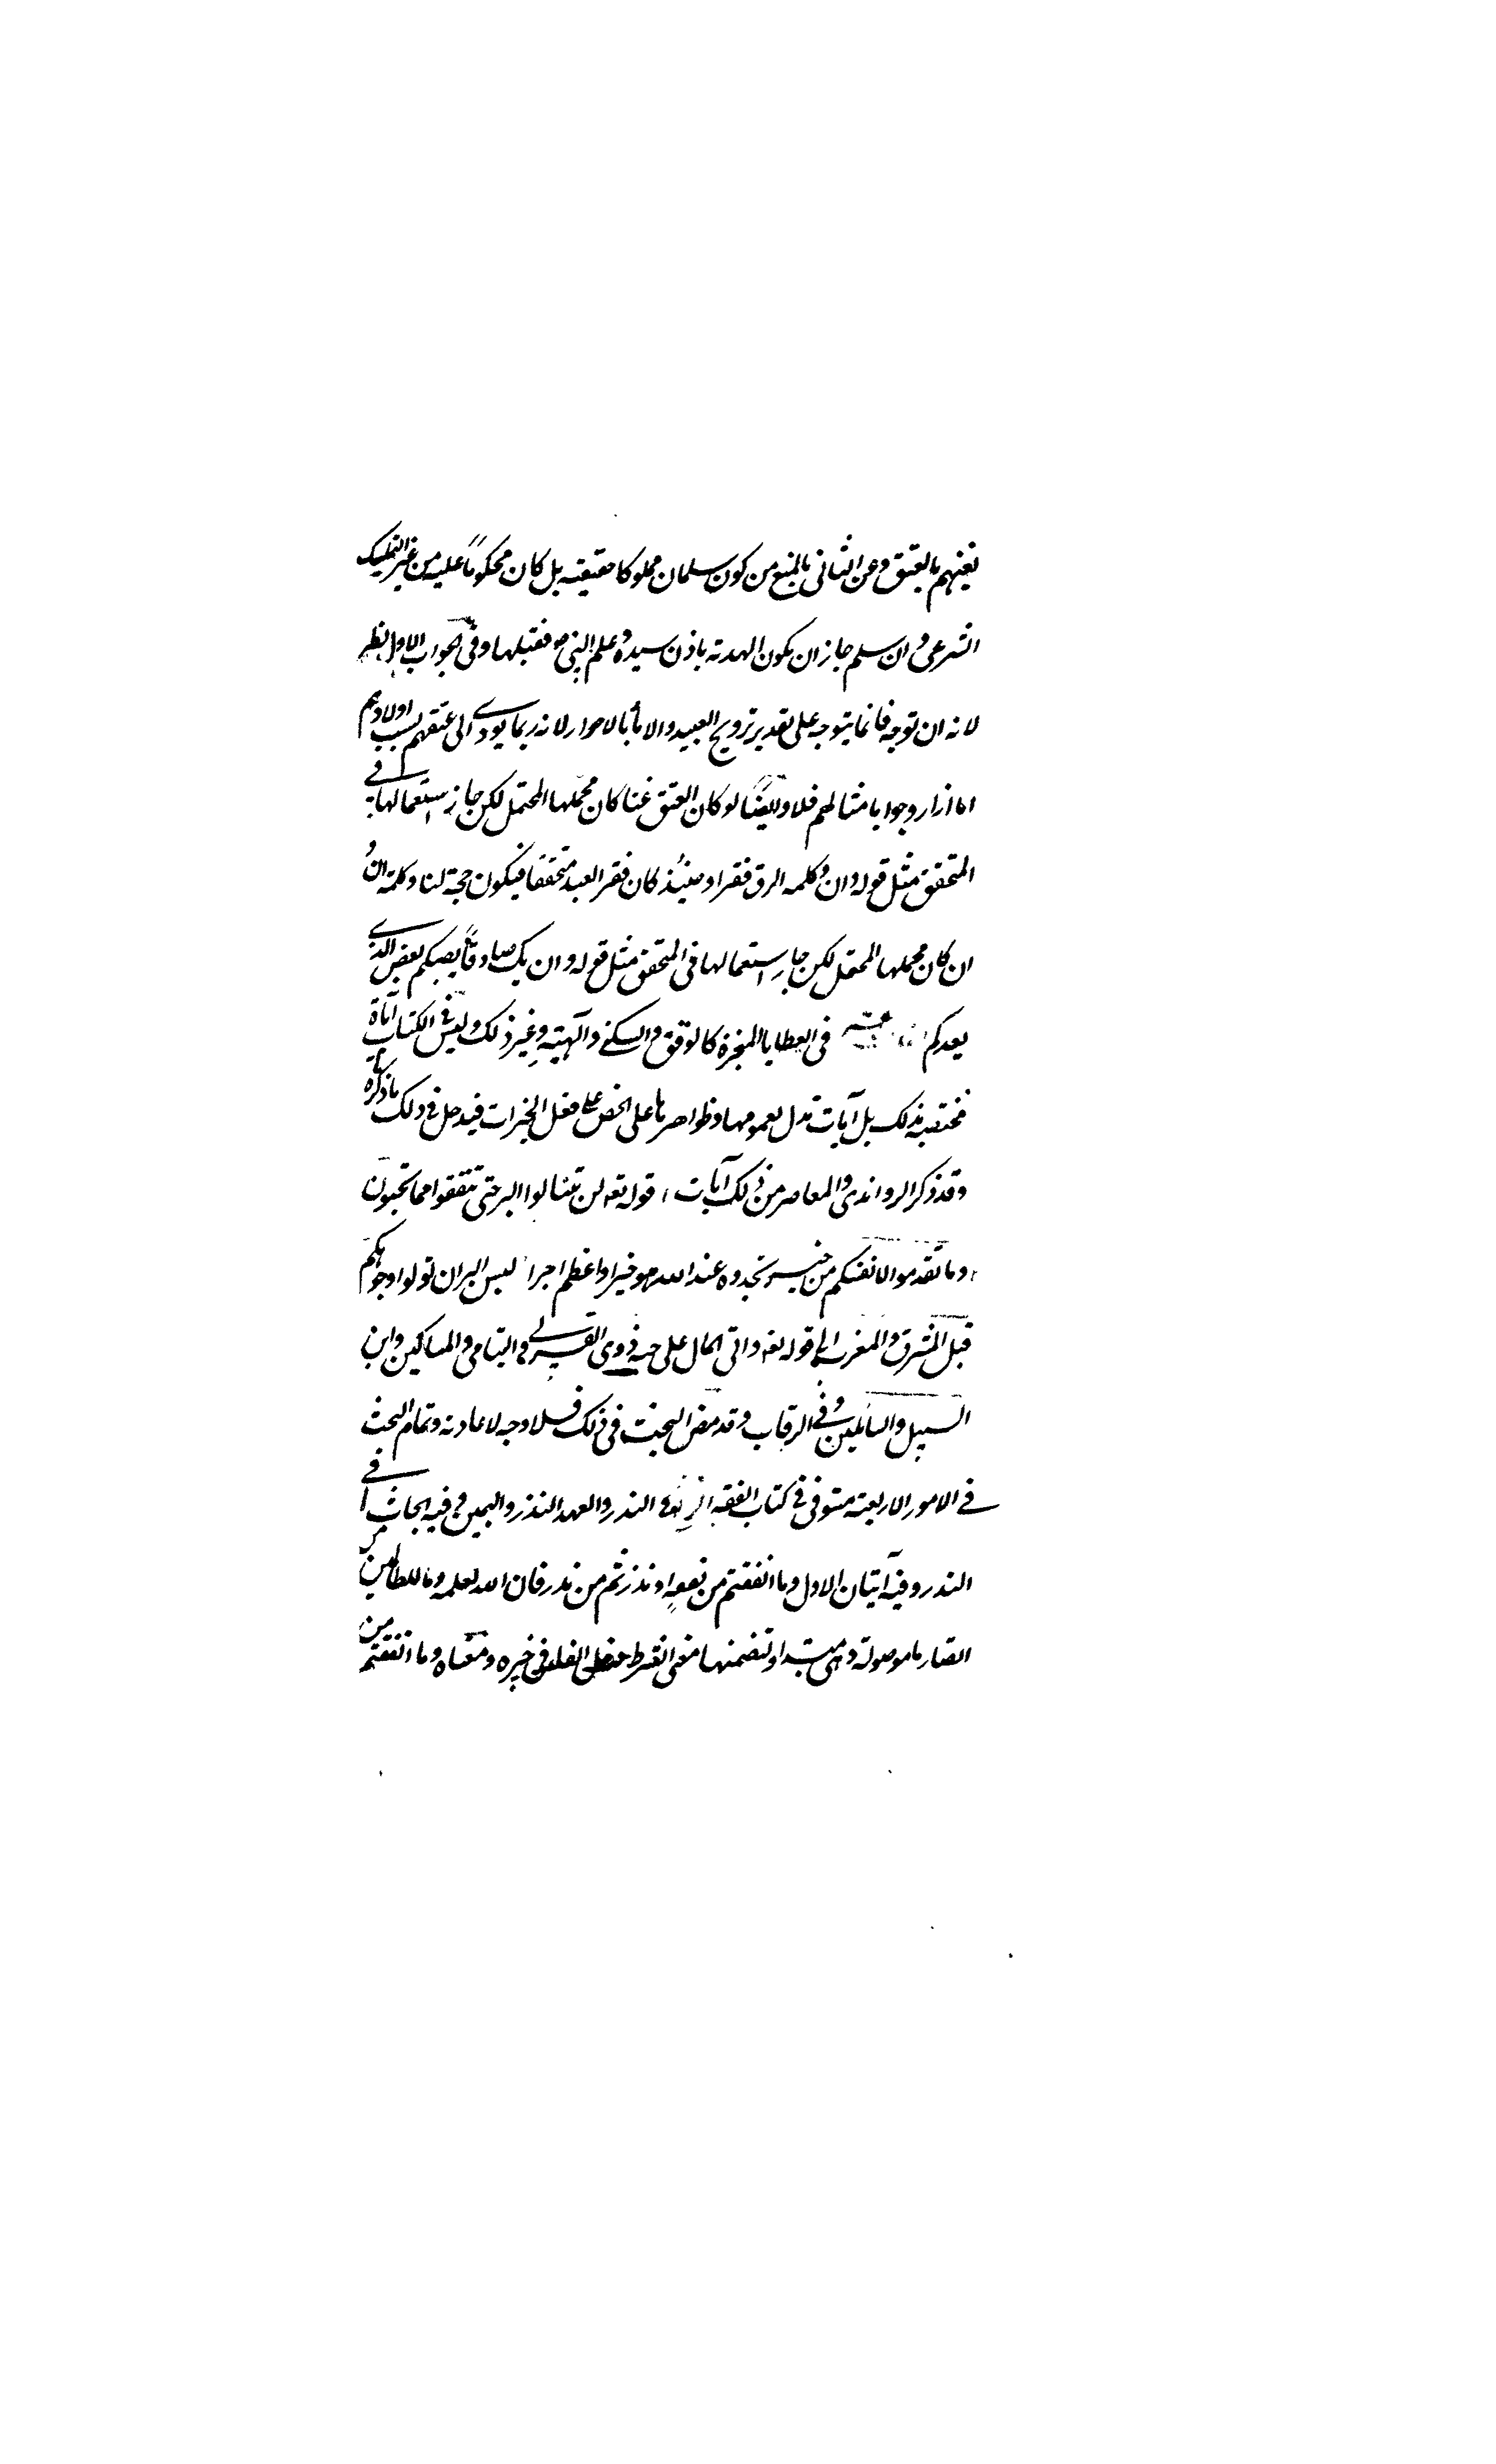 نعينهم بالعتق وعن الثانى بالمنع من كون سلمان مملوكا حقيقته بل كان محكوماً عليه من غير التمليك
الشرعى وان سلم جاز ان يكون الهدية باذن سيده وعلم النبى ص فقبلها وفى الجواب الاول نظر
لانه ان توجه فانما يتوجه على تقدير تزويج العبيد والامأ بالاحرار لانه ربما يودى الى عتقهم بسبب اولادهم
اما اذا زوجوا بامثالهم فلا وايضًا لو كان العتق غنا كان محملها المحتمل لكن جاز استعمالها فى
المتحقق مثل قوله وان وكلمه الرق فقرا وحينئذ كان فقر العبد متحققا فيكون حجة لنا وكلمة ان و
ان كان محملها المحتمل لكن جاز استعمالها فى المتحقق مثل قوله وان يك صادقاً يصبكم بعض الذى
يعدكم فى العطايا المنجزة كالوقف والسكنى والهبته وغير ذلك وليس فى الكتاب آياة
مختصة بذلك بل آيات تدل بعمومها وظواهرها على الحض على فعل الخيرات فيدخل فى ذلك ما ذكره
وقد ذكر الراوندى والمعاصر من ذلك آيات ا قوله تعه لن تنالوا البر حتى تنفقوا مما تحبون
وما تقدموا لانفسكم من خير تجدوه عند الله هو خيرا واعظم اجرا ليس البر ان تولوا وجوهكم
قبل المشرق والمغرب الى قوله تعه واتى المال على حبه ذوى القربى واليتامى والمساكين وابن
السبيل والسائلين وفى الرقاب وقد مضى البحث فى ذلك فلا وجه لاعادته وتمام البحث
فى الامور الاربعة مستوفى فى كتاب الفقه النذر والعهد النذر واليمين وفيه ابحاث ا فى
النذر وفيه آيتان الاول وما انفقتم من نفقه او نذرتم من نذر فان الله يعلمه وما للظالمين من
انصار ما موصولة وهى مبتدا وتضمنها معنى الشرط الفا فى خبره ومعناه وما انفقتم من